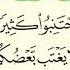 جتنبوا كثير
يغتب بعضكم